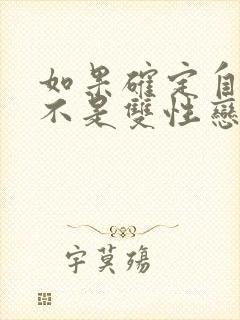 如果確定自
不是雙性戀
宇莫殤